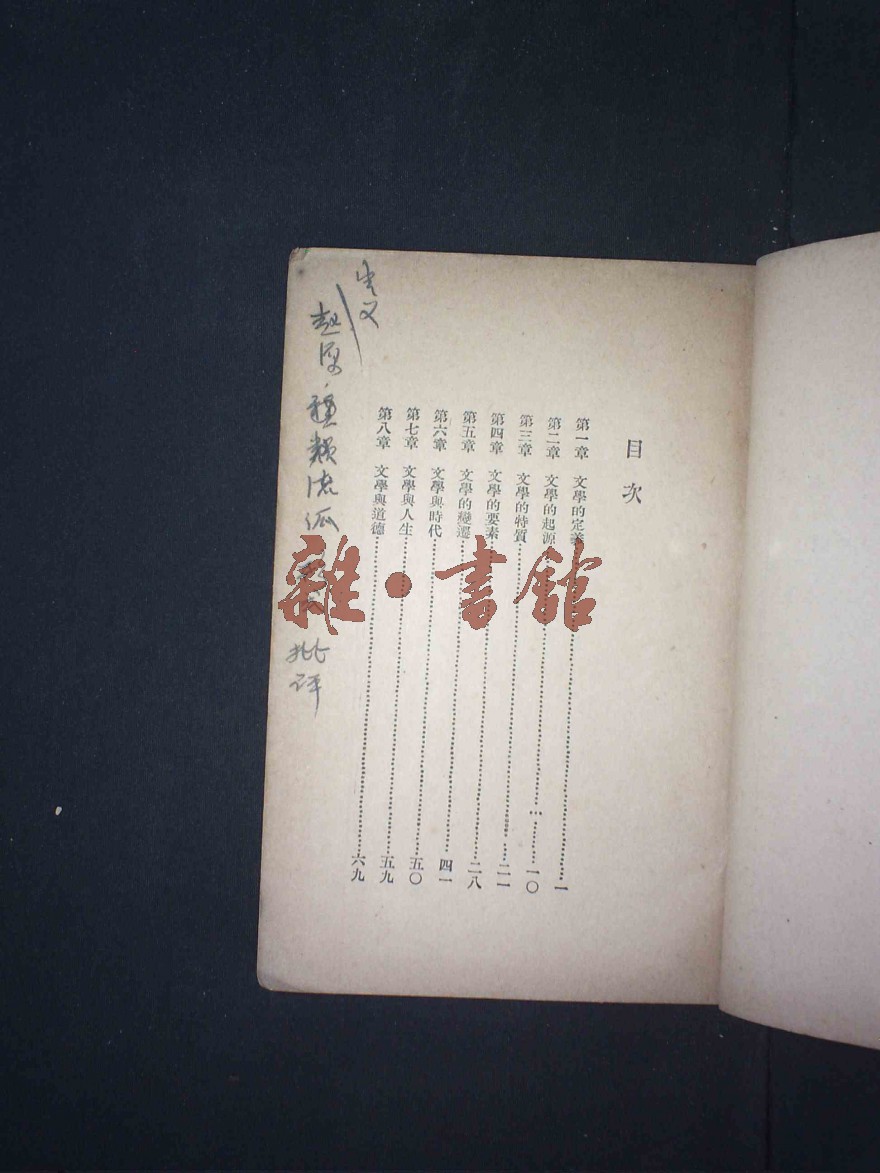 目次
第一章 文學的定義 一
第二章 文學的起源 一〇
第三章 文學的特質 二一
第四章 文學的要素 二八
第五章 文學的變遷 四一
第六章 文學與時代 五〇
第七章 文學與人生 五九
第八章 文學與道德 六九
起源、種類流派
批評
雜·書館